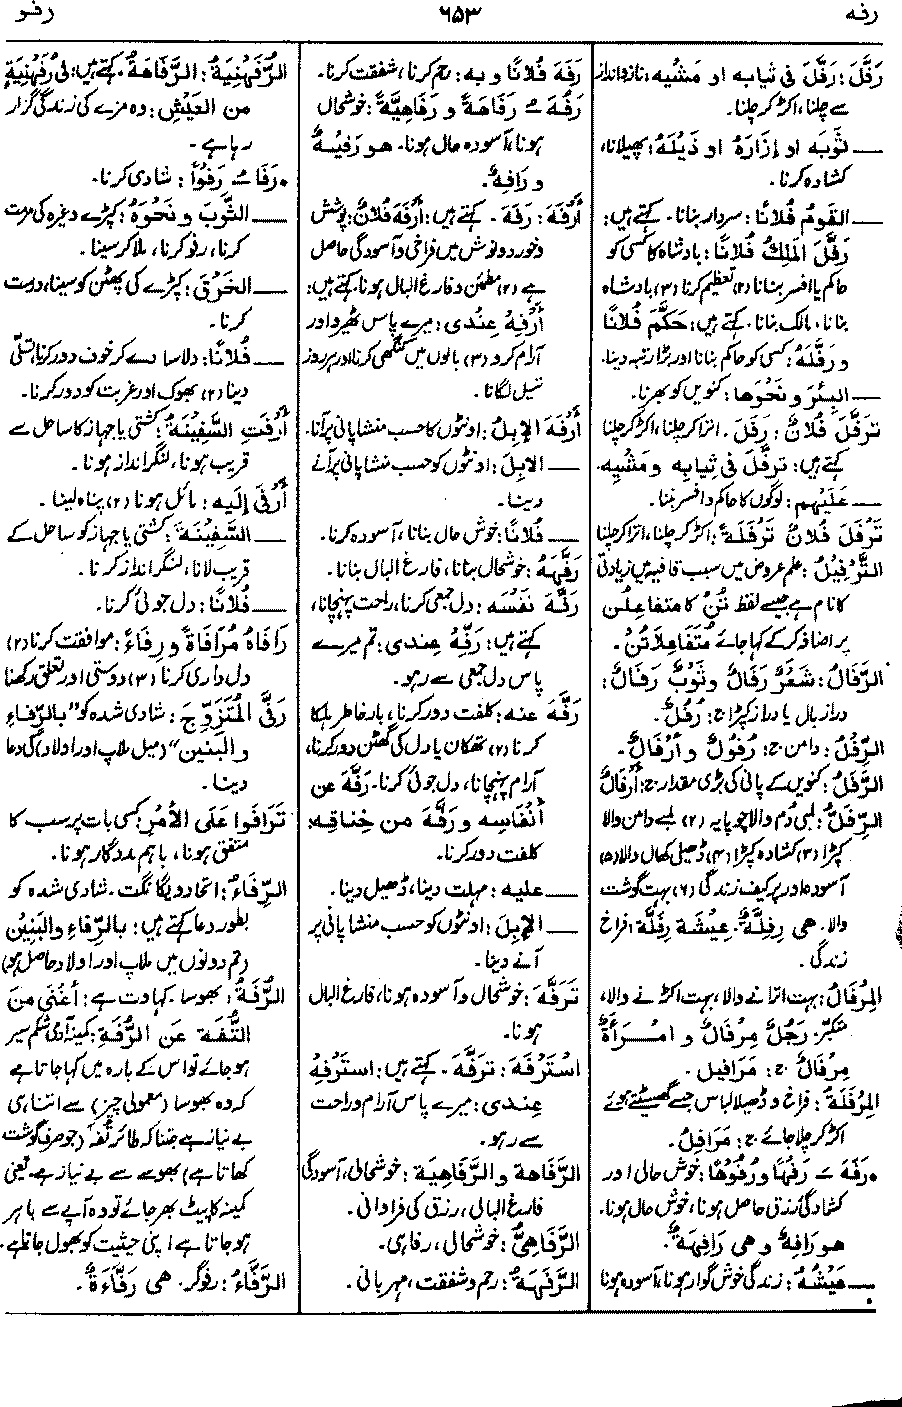 رفه ۶۵۳ رفو
رَفَّلَ: رَفَّلَ فی ثیابه او مَشْیِه: ناز وانداز
سے چلنا، اکڑ کر چلنا۔
— ثَوْبَه او إزَارَهُ او ذَیْلَهُ: پھیلانا،
کشادہ کرنا۔
— القَومُ فُلَانًا: سردار بنانا۔ کہتے ہیں:
رَفَّلَ المَلِكُ فُلَانًا: بادشاہ کا کسی کو
حاکم یا افسر بنانا (۲) تعظیم کرنا (۳) بادشاہ
بنانا، مالک بنانا۔ کہتے ہیں: حَكَّمَ فُلَانًا
ورَفَّلَهُ: کسی کو حاکم بنانا اور بڑا رتبہ دینا۔
— البِئْرَ و نَحْوَها: کنویں کو بھرنا۔
تَرَفَّلَ فُلَانٌ: رَفَلَ۔ اترا کر چلنا، اکڑ کر چلنا
کہتے ہیں: تَرفَّلَ فی ثِیَابِه ومَشْیِه۔
— عَلَیْهِم: لوگوں کا حاکم و افسر بننا۔
تَرْفَلَ فُلَانٌ تَرْفَلَةً: اکڑ کر چلنا، اترا کر چلنا
التَّرْفِیْلُ: علم عروض میں سبب قافیہ میں زیادتی
کا نام ہے جیسے لفظ تُنْ کا متفاعِلُن
پر اضافہ کرکے کہا جائے مُتَفَاعِلَاتُنْ۔
الرَّفَالُ: شَعْرٌ رَفَالٌ وثَوْبٌ رَفَالٌ:
دراز بال یا دراز کپڑا ج: رُفُلٌ۔
الرِّفْلُ: دامن ج: رُفُولٌ و أَرْفَالٌ۔
الرَّفَلُ: کنویں کے پانی کی بڑی مقدار ج: أَرْفَالٌ
الرِّفَلُّ: لمبی دُم والا چوپایہ (۲) لمبے دامن والا
کپڑا (۳) کشادہ کپڑا (۴) ڈھیلی کھال والا (۵)
آسودہ اور پُرکیف زندگی (۶) بہت گوشت
والا۔ هی رِفَلَّةٌ۔ عِیْشَة رِفَلَّة: فراخ
زندگی۔
المِرْفَالُ: بہت اترانے والا، بہت اکڑنے والا،
متکبّر۔ رَجُلٌ مِرْفَالٌ و امْرَأَةٌ
مِرْفَالٌ ج: مَرَافِیل۔
المِرْفَلَةُ: فراخ و ڈھیلا لباس جسے گھسیٹتے ہوئے
اکڑ کر چلا جائے ج: مَرَافِلُ۔
•رَفَهَ ـَ رَفْهًا ورُفُوْهًا: خوش حالی اور
کشادگیٔ رزق حاصل ہونا، خوش حال ہونا۔
هو رَافِهٌ و هی رَافِهَةٌ۔
— عَیْشُهٗ: زندگی خوش گوار ہونا، آسودہ ہونا
رَفَهَ فُلَانًا و به: رحم کرنا، شفقت کرنا۔
رَفُهَ ـُ رَفَاهَةً و رَفَاهِیَّةً: خوشحال
ہونا، آسودہ حال ہونا۔ هو رَفِیْهٌ
و رَافِهٌ۔
أَرْفَهَ: رَفَهَ۔ کہتے ہیں: أَرْفَهَ فُلَانٌ: پوشش
و خورد و نوش میں فراخی و آسودگی حاصل
ہے (۲) مطمئن و فارغ البال ہونا۔ کہتے ہیں:
أَرْفِهْ عِنْدی: میرے پاس ٹھیرو اور
آرام کرو (۳) بالوں میں کنگھی کرنا اور ہر روز
تیل لگانا۔
أَرْفَهَ الإِبِلُ: اونٹوں کا حسب منشا پانی پر آنا۔
— الإبِلَ: اونٹوں کو حسب منشا پانی پر آنے
دینا۔
— فُلَانًا: خوش حال بنانا، آسودہ کرنا۔
رَفَّهَهٗ: خوشحال بنانا، فارغ البال بنانا۔
رَفَّهَ نَفْسَهُ: دل جمعی کرنا، راحت پہنچانا،
کہتے ہیں: رَفِّهْ عِندی: تم میرے
پاس دل جمعی سے رہو۔
رَفَّهَ عنه: کلفت دور کرنا، بارِ خاطر ہلکا
کرنا (۲) تھکان یا دل کی گھٹن دور کرنا،
آرام پہنچانا، دل جوئی کرنا۔ رَفَّهَ عن
أَنْفَاسِه و رَفَّهَ من خِناقِه:
کلفت دور کرنا۔
— علیه: مہلت دینا، ڈھیل دینا۔
— الإبِلَ: اونٹوں کو حسب منشا پانی پر
آنے دینا۔
تَرَفَّهَ: خوشحال و آسودہ ہونا، فارغ البال
ہونا۔
اسْتَرْفَهَ: تَرفَّهَ۔ کہتے ہیں: استَرْفِهْ
عِنْدی: میرے پاس آرام و راحت
سے رہو۔
الرَّفَاهة والرَّفَاهِیَة: خوشحالی، آسودگی
فارغ البالی، رزق کی فراوانی۔
الرَّفَاهِیُّ: خوشحالی، رفاہی۔
الرَّفَهَةُ: رحم و شفقت، مہربانی۔
الرُّفَهْنِیَةُ: الرَّفَاهَةُ۔ کہتے ہیں: فی رُفَهْنِیَةٍ
من العَیْشِ: وہ مزے کی زندگی گزار
رہا ہے۔
•رَفَأَ ـَ رَفْوًا: شادی کرنا۔
— الثَّوبَ و نَحْوَهُ: کپڑے وغیرہ کی مرمت
کرنا، رفو کرنا، ملا کر سینا۔
— الخَرْقَ: کپڑے کی پھٹن کو سینا، درست
کرنا۔
— فُلَانًا: دلاسا دے کر خوف دور کرنا، تسلّی
دینا (۲) بھوک اور غربت کو دور کرنا۔
أَرْفَتِ السَّفِیْنَةُ: کشتی یا جہاز کا ساحل سے
قریب ہونا، لنگر انداز ہونا۔
أَرْفَى إلَیه: مائل ہونا (۲) پناہ لینا۔
— السَّفِیْنَةَ: کشتی یا جہاز کو ساحل کے
قریب لانا، لنگر انداز کرنا۔
— فُلَانًا: دل جوئی کرنا۔
رَافَاهُ مُرَافَاةً و رِفَاءً: موافقت کرنا (۲)
دل داری کرنا (۳) دوستی اور تعلق رکھنا
رَفَّى المُتَزَوِّجَ: شادی شدہ کو "بالرِّفَاءِ
والبَنِین" (میل ملاپ اور اولاد) کی دعا
دینا۔
تَرَافَوا عَلَى الأَمْرِ: کسی بات پر سب کا
متفق ہونا، باہم مددگار ہونا۔
الرِّفَاءُ: اتحاد و یگانگت۔ شادی شدہ کو
بطور دعا کہتے ہیں: بالرِّفاءِ والبَنِیْن
(تم دونوں میں ملاپ اور اولاد حاصل ہو)
الرُّفَةُ: بھوسا۔ کہاوت ہے: أَغْنَى مِنَ
التُّفَةِ عَنِ الرُّفَةِ: کمینہ آدمی شکم سیر
ہو جائے تو اس کے بارہ میں کہا جاتا ہے
کہ وہ بھوسا (معمولی چیز) سے اتنا ہی
بے نیاز ہے جتنا کہ طائر تُفَہ (جو صرف گوشت
کھاتا ہے) بھوسے سے بے نیاز ہے۔ یعنی
کمینہ کا پیٹ بھر جائے تو وہ آپے سے باہر
ہو جاتا ہے اپنی حیثیت کو بھول جاتا ہے۔
الرَّفَّاءُ: رفوگر۔ هی رَفَّاءَةٌ۔